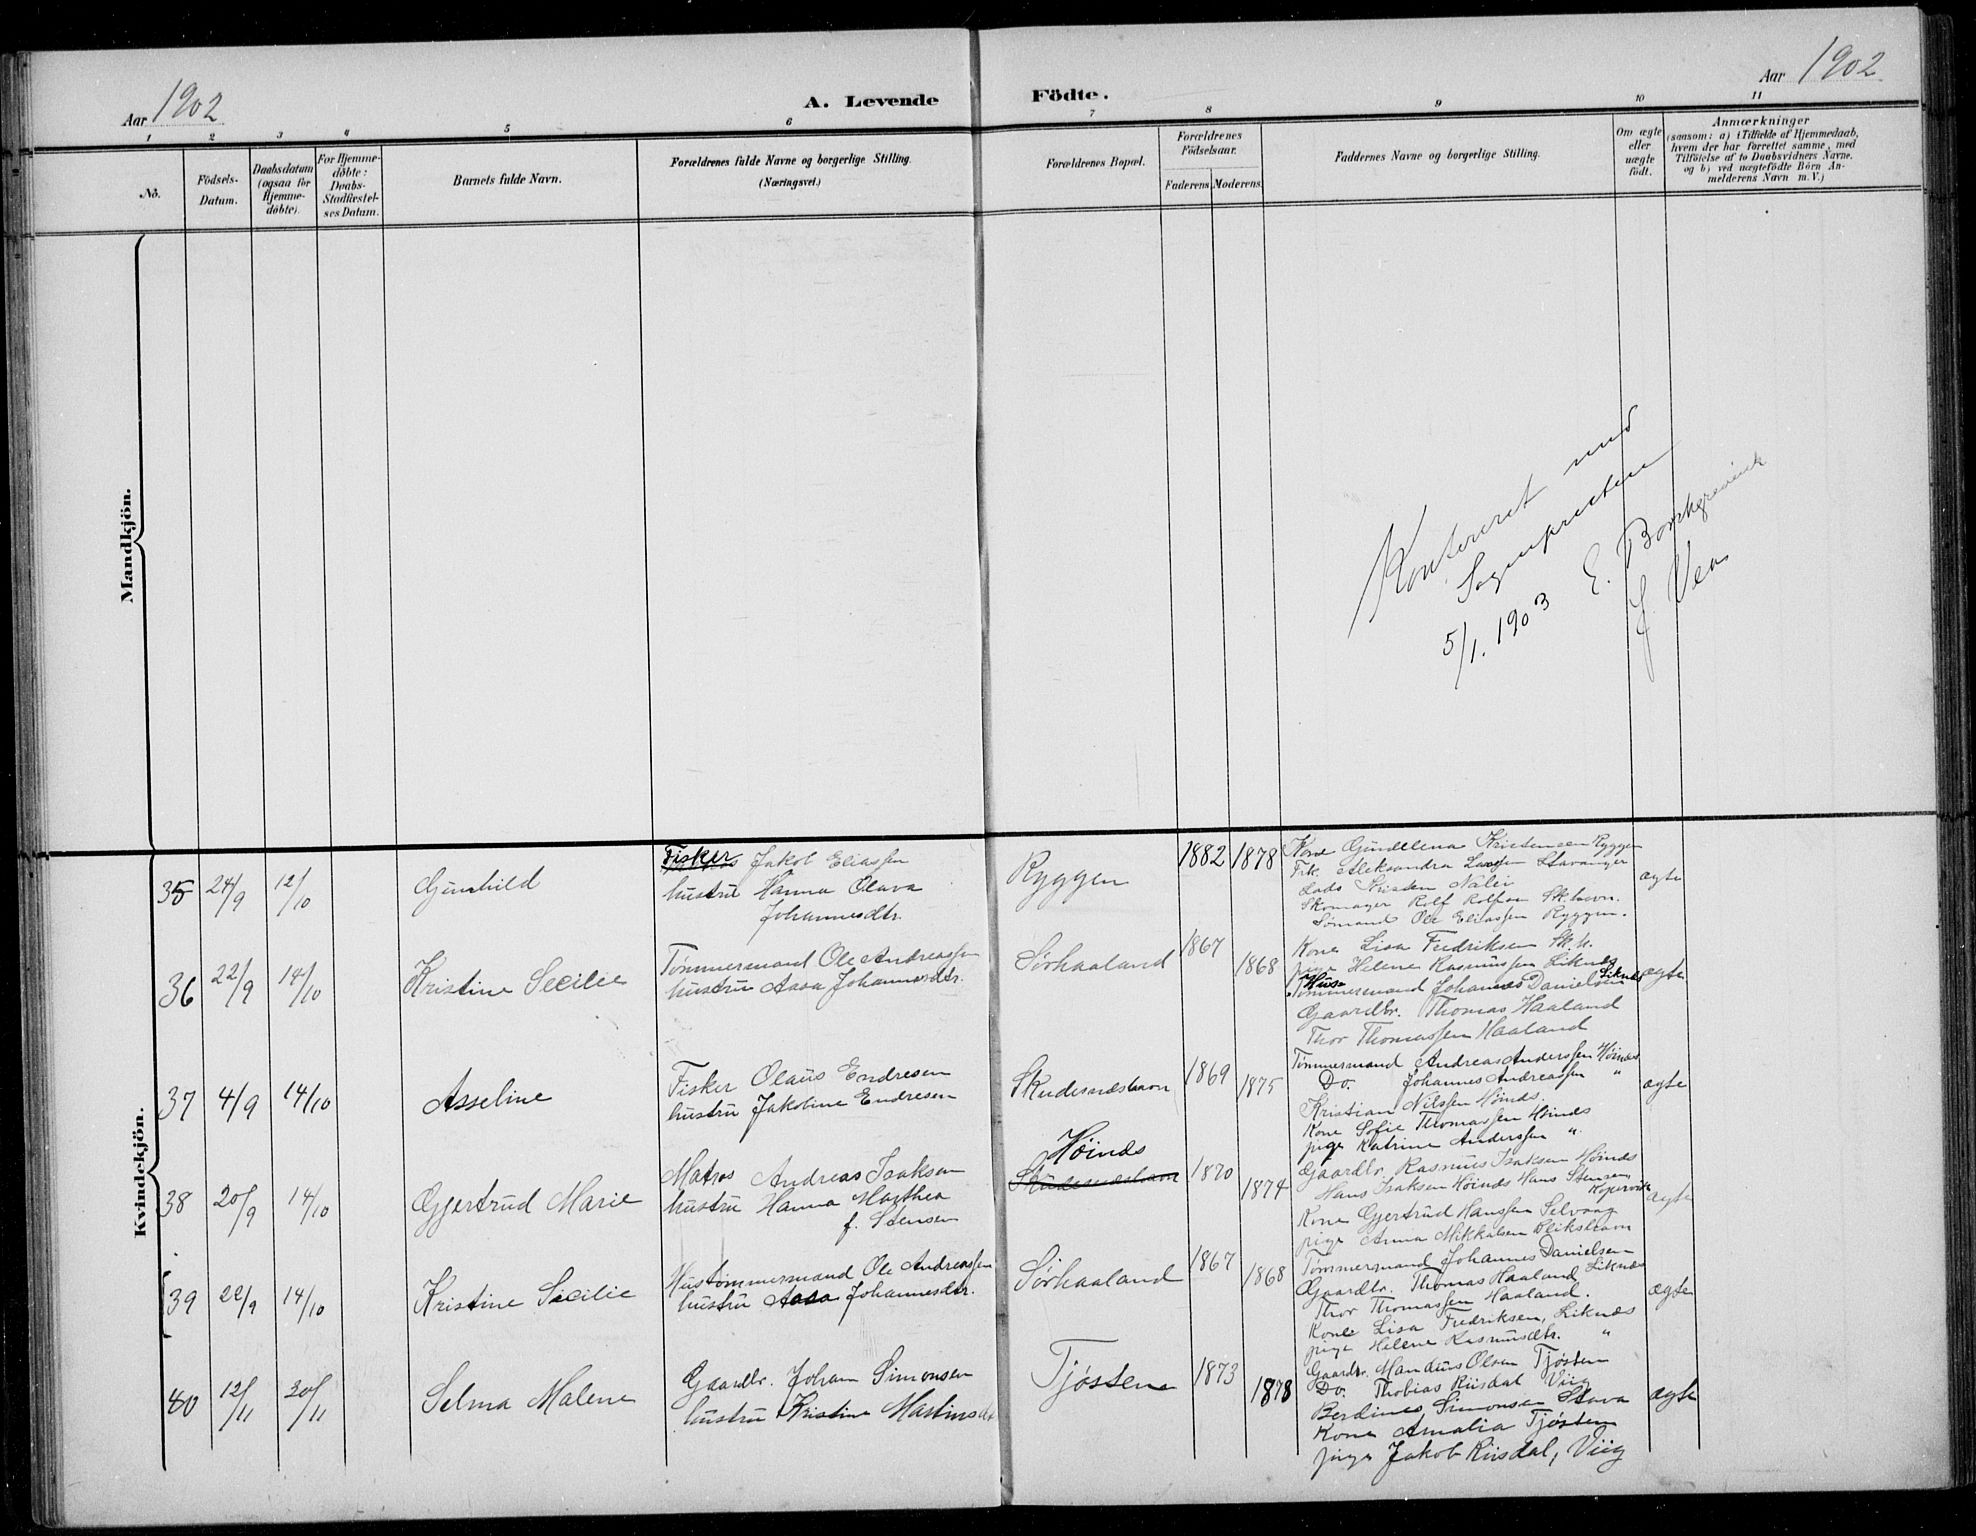 Aar 1902
A. Levende Födte.
Aar 1902
1 2 3 4 5 6 7 8 9 10 11
No.
Födsels-
Datum.
Daabsdatum
(ogsaa for
Hjemme-
döbte).
For Hjemme-
döbte:
Daabs-
Stadfæstel-
ses Datum.
Barnets fulde Navn.
Forældrenes fulde Navne og borgerlige Stilling.
(Næringsvei.)
Forældrenes Bopæl.
Forældrenes
Födselsaar.
Faderens. Moderens.
Faddernes Navne og borgerlige Stilling.
Om ægte
eller
uægte
födt.
Anmærkninger
(saasom: a) i Tilfælde af Hjemmedaab,
hvem der har forrettet samme, med
Tilföielse af to Daabsvidners Navne,
og b) ved uægtefödte Börn An-
melderens Navn m. V.)
Mandkjön.
Konfereret med
Sogneprestens
5/1. 1903 E. Borchgrevink
J. Vea
Kvindekjön.
35 24/9 12/10 Gunhild
Fisker Jakob Eliassen
hustru Hanna Olava
Johannesdtr.
Ryggen 1882 1878
Kone Gundelena Kristensen Ryggen
Frk. Aleksandra Stavanger
Lods Kristen Nalei
Skomager Rolf Rolfsen Sk.havn.
Sømand Ole Eliassen Ryggen.
ægte
36 22/9 14/10 Kristine Secilie
Tømmermand Ole Andreassen
hustru Aasa Johannesdtr.
Sørhaaland 1867 1868
Kone Lisa Fredriksen Sk.h.
pige Helene Rasmussen Liknes
Hus
Tømmermand Johannes Danielsen Liknes
Gaardbr. Thomas Haaland
Thor Thomassen Haaland
ægte
37 4/9 14/10 Asseline
Fisker Olaus Endresen
hustru Jakobine Endresen
Skudesneshavn 1869 1875
Tømmermand Andreas Anderssen Høines
Do. Johannes Andreassen "
Kristian Nilssen Høines.
Kone Sofie Thomassen Høines
pige Katrine Anderssen "
ægte
38 20/9 14/10 Gjertrud Marie
Matros Andreas Isaksen
hustru Hanna Marthea
f. Stensen
Høines
Skudesneshavn 1870 1874
Gaardbr. Rasmus Isaksen Høines
Hans Isaksen Høines Hans Stensen
Kopervik
Kone Gjertrud Hanssen Selvaag
pige Anna Mikkalsen Blikshavn
ægte
39 22/9 14/10 Kristine Sicilie
Hustømmermand Ole Andreassen
hustru Aasa Johannesdtr.
Sørhaaland 1867 1868
Tømmermand Johannes Danielsen
Gaardbr. Thomas Haaland Liknes
Thor Thomassen Haaland.
Kone Lisa Fredriksen, Liknes
pige Helene Rasmusdtr. "
ægte
40 12/11 30/11 Selma Malene
Gaardbr. Johan Simonsen
hustru Kristine Martinsdtr
Tjøsten 1873 1878
Gaardbr. Mandius Olsen Tjøsten
Do. Thobias Riisdal Viig
Berdines Simonsen Stava
Kone Amalia Tjøsten
pige Jakob Riisdal, Viig
ægte